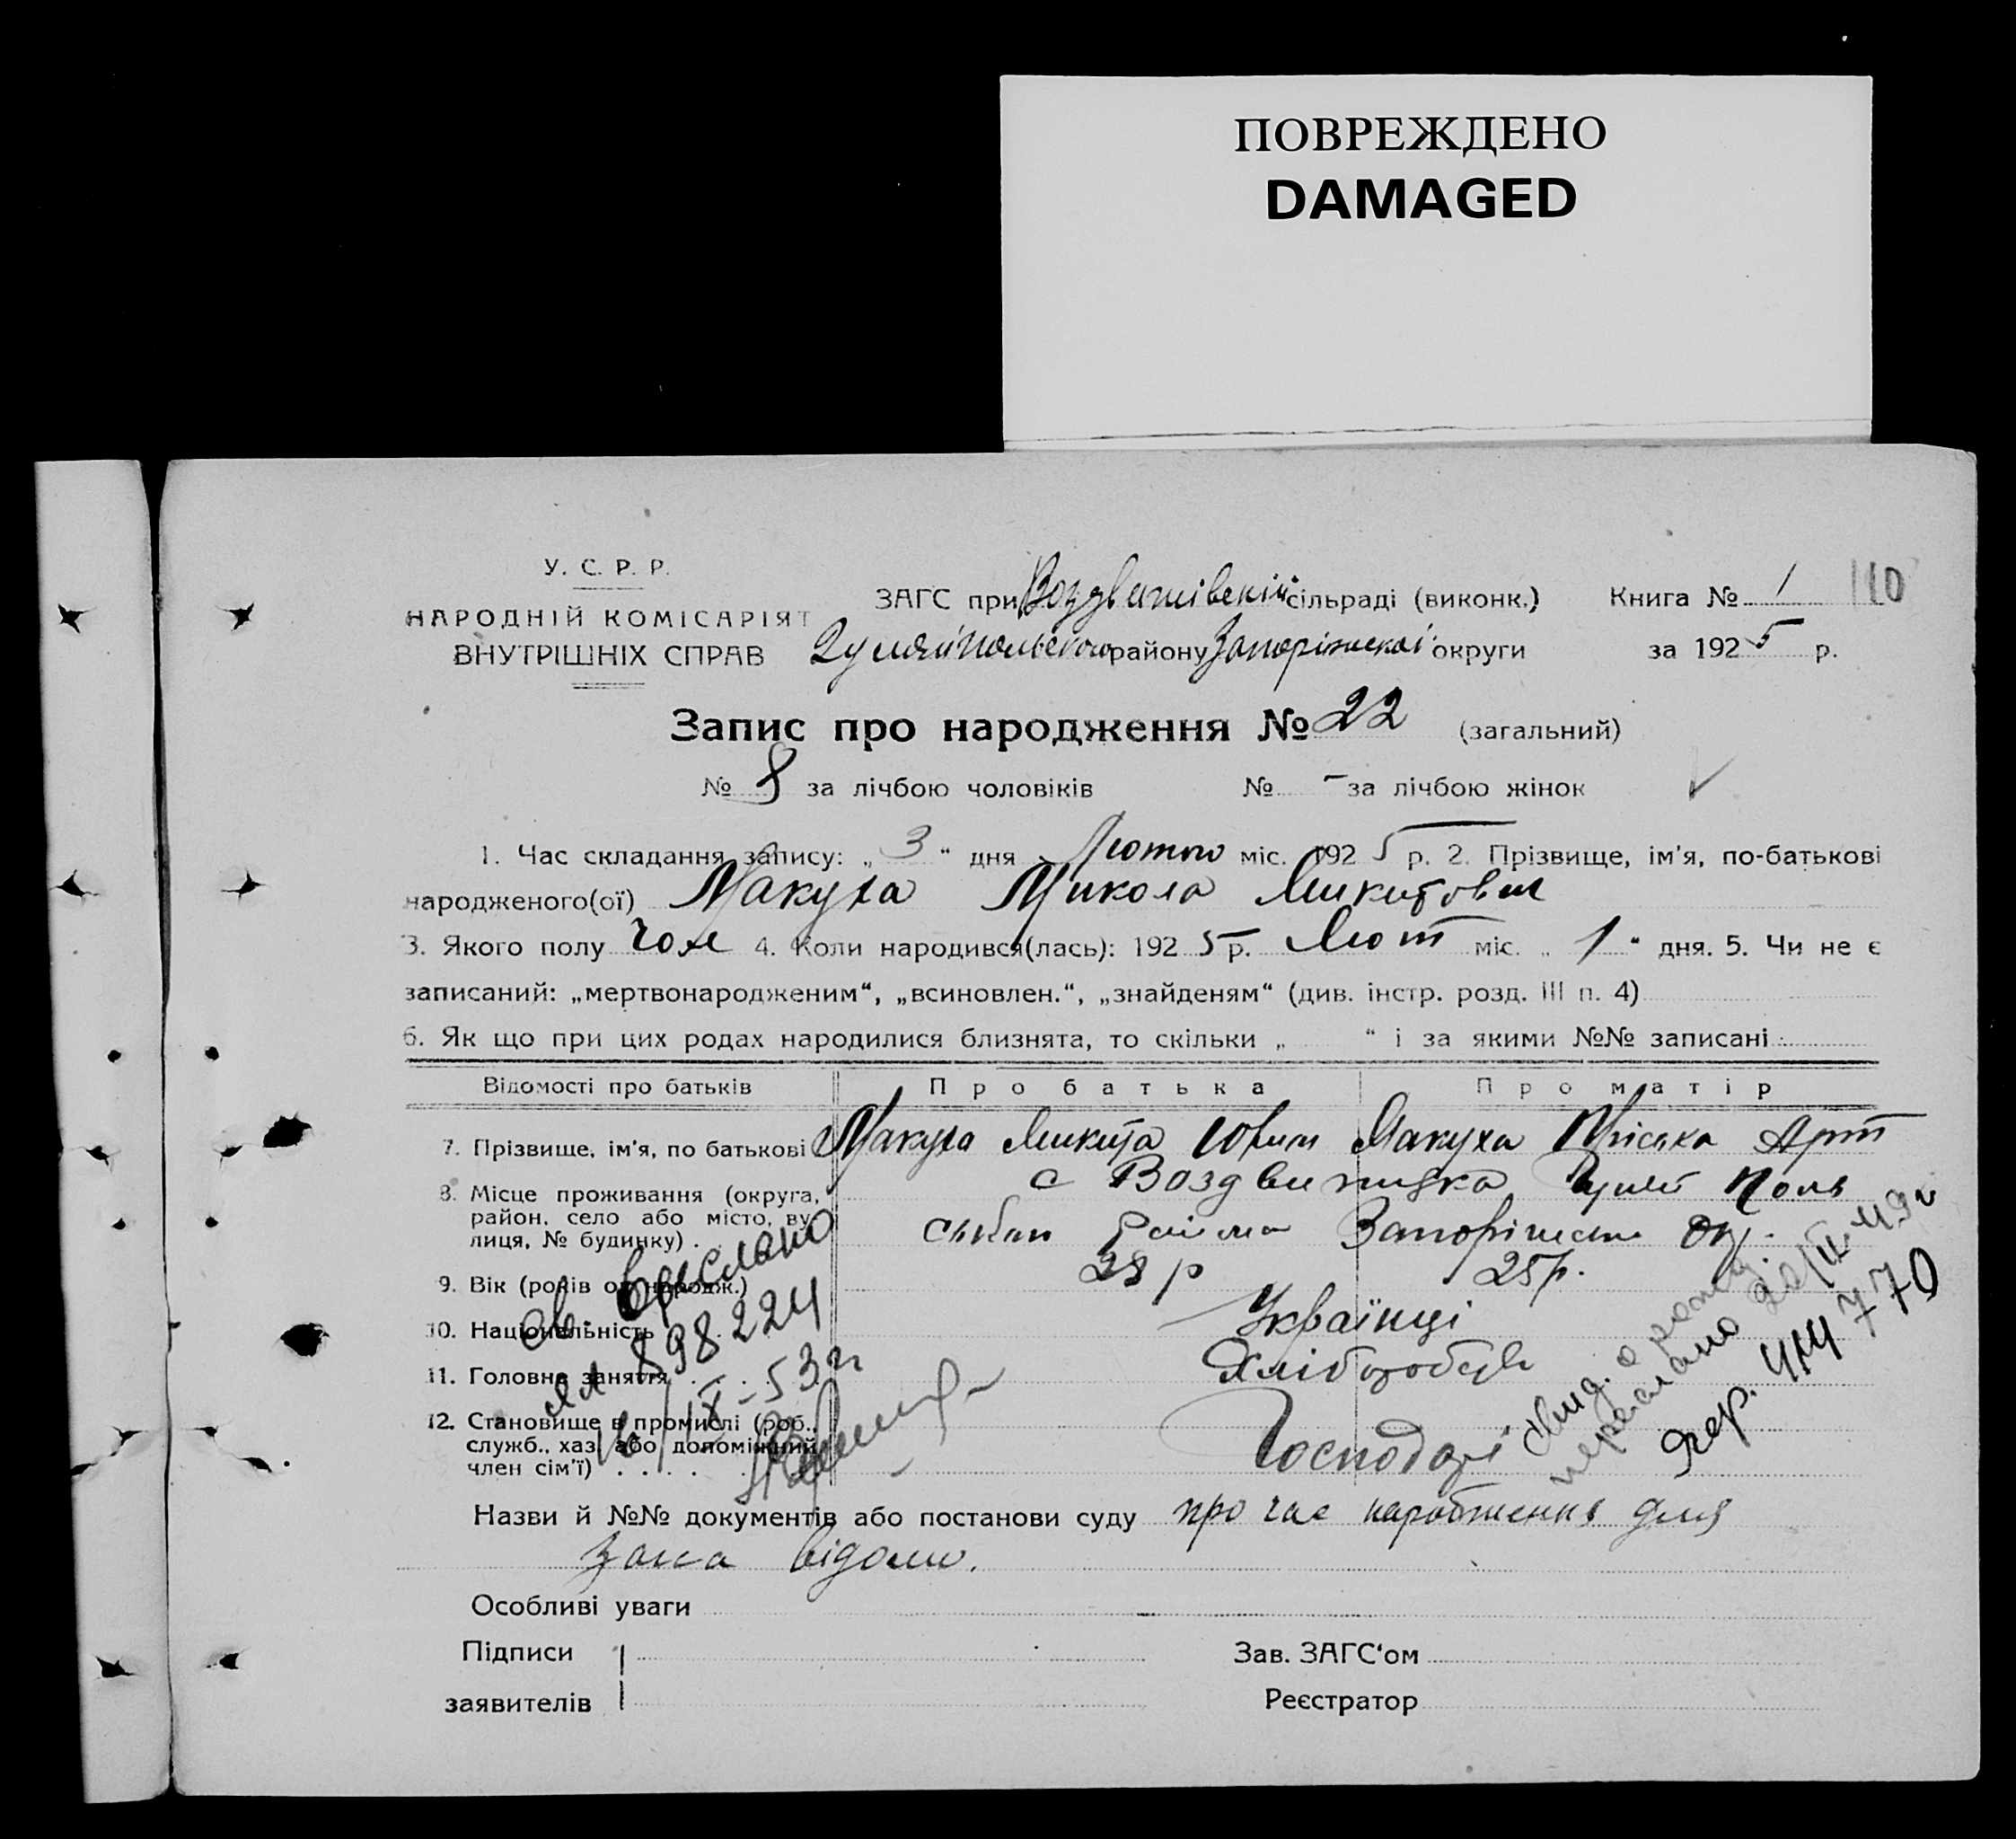 ПОВРЕЖДЕНО
DAMAGED
У. С. Р. Р.
НАРОДНІЙ КОМІСАРІЯТ
ВНУТРІШНІХ СПРАВ
ЗАГС при Воздвижівській сільраді (виконк.) Книга № 1 110
Гуляйпольського району Запоріжської округи за 1925 р.
Запис про народження № 22 (загальний)
№ 8 за лічбою чоловіків № - за лічбою жінок
1. Час складання запису: „3“ дня Лютого міс. 1925 р. 2. Прізвище, ім'я, по-батькові
народженого(ої) Макуха Микола Микитович
3. Якого полу чол 4. Коли народився(лась): 1925 р. Лют міс. „1“ дня. 5. Чи не є
записаний: „мертвонародженим“, „всиновлен.“, „знайденям“ (див. інстр. розд. III п. 4)
6. Як що при цих родах народилися близнята, то скільки „ “ і за якими №№ записані
Відомості про батьків Про батька Про матір
7. Прізвище, ім'я, по батькові Макуха Микита Макуха Пріська Арт
8. Місце проживання (округа, с Воздвижівка Гуляй Поль
район, село або місто, ву- Району Запоріжськ Окр.
лиця, № будинку)
9. Вік (років од народж.) 28 р 25 р.
10. Національність Українці
11. Головне заняття Хлібороби
12. Становище в промислі (роб.,
служб., хаз. або допоміжний
член сім'ї) Господарі
Св. выслано
898224
IX-53 г
выслано
414770
Назви й №№ документів або постанови суду про час народження для
загса відомо.
Особливі уваги
Підписи
заявителів
Зав. ЗАГС'ом
Реєстратор